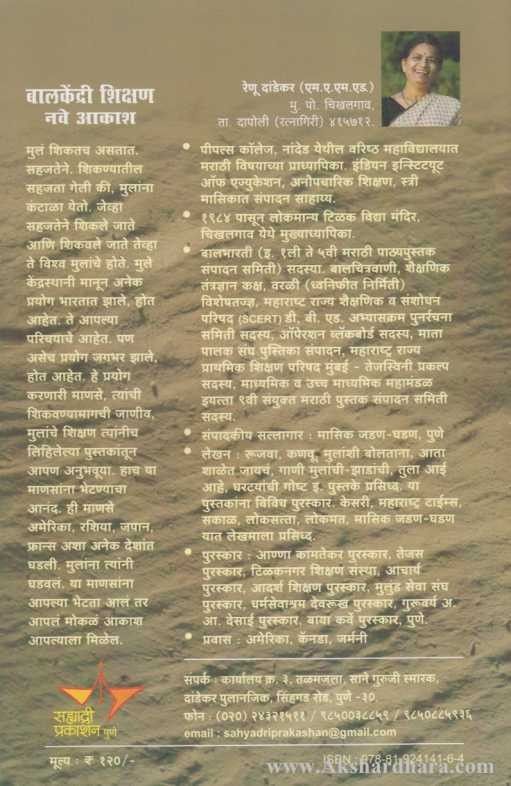 बालकेंद्री शिक्षण
नवे आकाश
मुलं शिकतच असतात.
सहजतेने. शिकण्यातील
सहजता गेली की, मुलांना
कंटाळा येतो. जेव्हा
सहजतेने शिकले जाते
आणि शिकवले जाते तेव्हा
ते विश्व मुलांचे होते. मुले
केंद्रस्थानी मानून अनेक
प्रयोग भारतात झाले, होत
आहेत. ते आपल्या
परिचयाचे आहेत. पण
असेच प्रयोग जगभर झाले,
होत आहेत. हे प्रयोग
करणारी माणसे, त्यांची
शिकवण्यामागची जाणीव,
मुलांचे शिक्षण त्यांनीच
लिहिलेल्या पुस्तकातून
आपण अनुभवूया. हाच या
माणसांना भेटण्याचा
आनंद. ही माणसे
अमेरिका, रशिया, जपान,
फ्रान्स अशा अनेक देशांत
घडली. मुलांना त्यांनी
घडवलं. या माणसांना
आपल्या भेटता आलं तर
आपलं मोकळं आकाश
आपल्याला मिळेल.
रेणू दांडेकर (एम.ए.एम.एड.)
मु. पो. चिखलगाव,
ता. दापोली (रत्नागिरी) ४१५७१२.
• पीपल्स कॉलेज, नांदेड येथील वरिष्ठ महाविद्यालयात
मराठी विषयाच्या प्राध्यापिका. इंडियन इन्स्टिट्यूट
ऑफ एज्युकेशन, अनौपचारिक शिक्षण, स्त्री
मासिकात संपादन साहाय्य.
• १९८४ पासून लोकमान्य टिळक विद्या मंदिर,
चिखलगाव येथे मुख्याध्यापिका.
• बालभारती (इ. १ली ते ५वी मराठी पाठ्यपुस्तक
संपादन समिती) सदस्या. बालचित्रवाणी, शैक्षणिक
तंत्रज्ञान कक्ष, वरळी (ध्वनिफीत निर्मिती)
विशेषतज्ज्ञ. महाराष्ट्र राज्य शैक्षणिक व संशोधन
परिषद (SCERT) डी. बी. एड. अभ्यासक्रम पुनर्रचना
समिती सदस्य, ऑपरेशन ब्लॅकबोर्ड सदस्य, माता
पालक संघ पुस्तिका संपादन, महाराष्ट्र राज्य
प्राथमिक शिक्षण परिषद मुंबई - तेजस्विनी प्रकल्प
सदस्य, माध्यमिक व उच्च माध्यमिक महामंडळ
इयत्ता ९वी संयुक्त मराठी पुस्तक संपादन समिती
सदस्य.
• संपादकीय सल्लागार : मासिक जडण-घडण, पुणे
• लेखन : रूजवा, कणवू, मुलांशी बोलताना, आता
शाळेत जायचं, गाणी मुलांची-झाडांची, तुला आई
आहे, घरट्यांची गोष्ट इ. पुस्तके प्रसिध्द. या
पुस्तकांना विविध पुरस्कार. केसरी, महाराष्ट्र टाईम्स,
सकाळ, लोकसत्ता, लोकमत, मासिक जडण-घडण
यात लेखमाला प्रसिध्द.
• पुरस्कार : आण्णा कामतेकर पुरस्कार, तेजस
पुरस्कार, टिळकनगर शिक्षण संस्था, आचार्य
पुरस्कार, आदर्श शिक्षण पुरस्कार, मुलुंड सेवा संघ
पुरस्कार, धर्मसेवाश्रम देवरूख पुरस्कार, गुरूवर्य अ.
आ. देसाई पुरस्कार, बाया कर्वे पुरस्कार, पुणे.
• प्रवास : अमेरिका, कॅनडा, जर्मनी
सह्याद्री
प्रकाशन पुणे
मूल्य : ₹ १२०/-
संपर्क : कार्यालय क्र. ३, तळमजला, साने गुरुजी स्मारक,
दांडेकर पुलानजिक, सिंहगड रोड, पुणे -३०
फोन : (०२०) २४३२१५११ / ९८५००३८८५९ / ९८५०८८५९३६
email : sahyadriprakashan@gmail.com
ISBN : 978-81-924141-6-4
www.Akshardhara.com